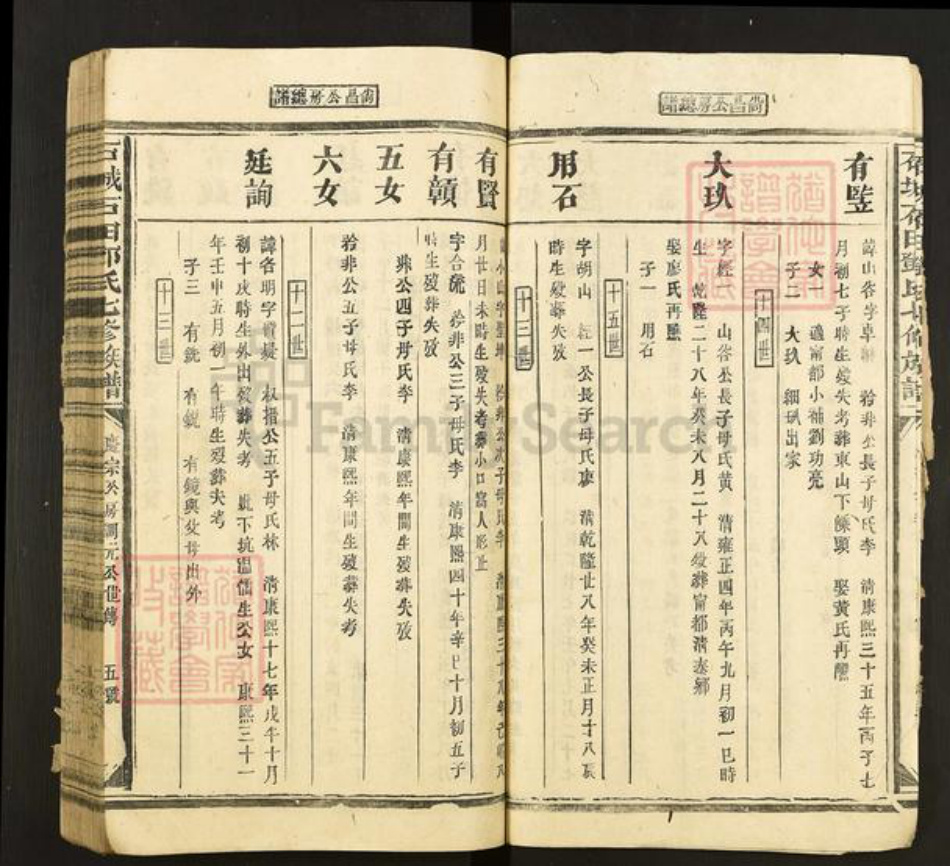 尙昌公房總譜
有堅
諱山谷字卓 於非公長子母氏李 淸康熙三十五年丙子七
月初七子時生歿失考葬東山下 娶黃氏再醮
女一 適甯都小補劉功亮
子二 大玖 出家
十四世
大玖
字經一 山谷公長子母氏黃 淸雍正四年丙午九月初一巳時
生 乾隆二十八年癸未八月二十八歿葬甯都淸泰鄉
娶廖氏再醮
子一 用石
十五世
用石
字胡山 經一公長子母氏廖 淸乾隆廿八年癸未正月十八
時生歿葬失攷
十三世
尙昌公房總譜
有賢
月廿日未時生歿失考葬小口窩人形
有贛
字合 於非公三子母氏李 淸康熙四十年辛巳十月初五子
時生歿葬失攷
五女
非公四子母氏李 淸康熙年間生歿葬失攷
六女
於非公五子母氏李 淸康熙年間生歿葬失考
十二世
廷詢
諱各明字 公五子母氏林 淸康熙十七年戊午十月
初十戌時生外出歿葬失考 下坑溫儒生公女 康熙三十一
年壬申五月初一午時生歿葬失考
子三 有銃 有銳 有鏡與父母出外
十三世
石城石田鄧氏七修族譜
慶宗公房調元公世傳 五號
FamilySearch